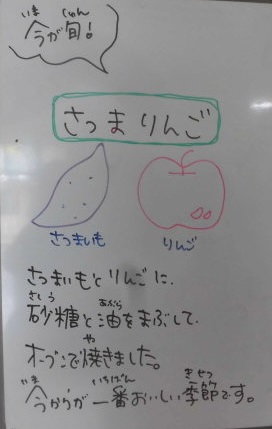 いま しゅん
今が旬!
さつまりんご
さつまいも りんご
さつまいもとりんごに、
さとう あぶら
砂糖と油をまぶして、
や
オーブンで焼きました。
いま いちばん きせつ
今からが一番おいしい季節です。